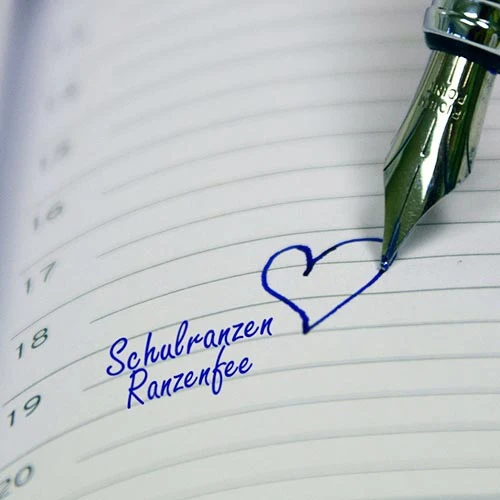 14
15
16
17
18
Schulranzen
Ranzenfee
19
20